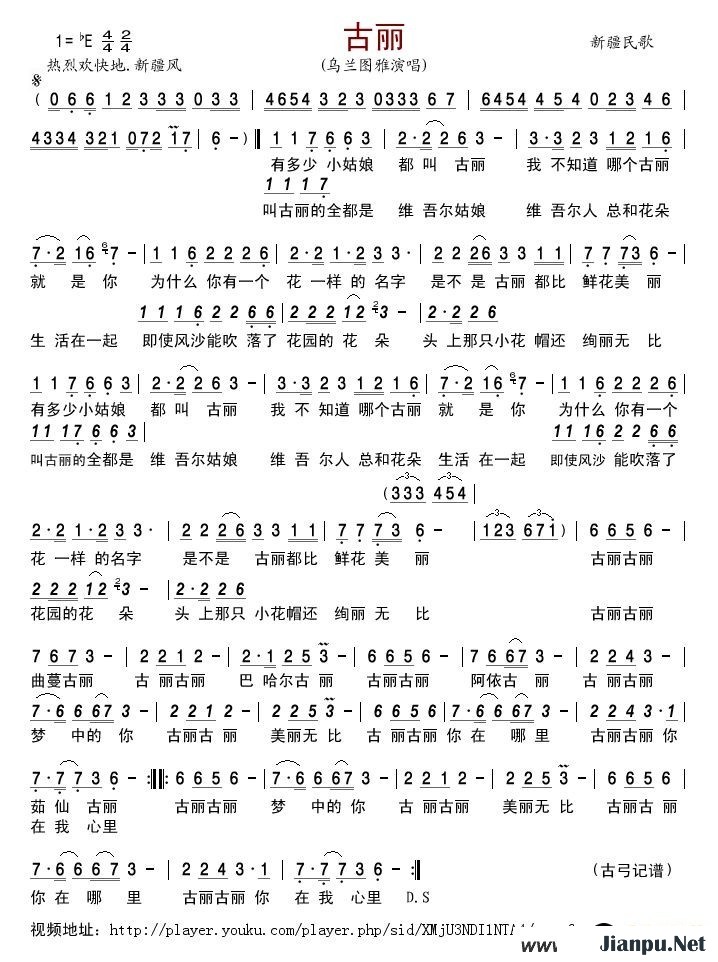 古丽
1= ♭E 4/4 2/4
新疆民歌
热烈欢快地.新疆风
(乌兰图雅演唱)
( 0 6·6 1 2 3 3 3 0 3 3 | 4654 323 0333 6 7 | 6454 54 0 2 3 4 6 |
4334 321 072 17 | 6 - ) 1 1 7 6 6 3 | 2·2 2 6 3 - | 3·3 2 3 1 2 1 6 |
有多少 小姑娘 都 叫 古丽 我 不知道 哪个古丽
1 1 1 7
叫古丽的全都是 维 吾尔姑娘 维 吾尔人 总和花朵
7·2 16 7 - | 1 1 6 2 2 2 6 | 2·2 1·2 3 3 | 2 2 26 3 3 1 1 | 7 7 73 6 - |
就 是 你 为什么 你有一个 花 一样 的 名字 是不 是 古丽 都比 鲜花美 丽
1 1 1 6 2 2 6 6 | 2 2 2 12 3 - | 2·2 2 6
生 活在一起 即使风沙能吹 落了 花园的 花 朵 头 上那只小花 帽还 绚丽无 比
1 1 7 6 6 3 | 2·2 26 3 - | 3·3 2 3 1 2 1 6 | 7·2 16 7 - | 1 1 6 2 2 2 6 |
有多少小姑娘 都 叫 古丽 我 不 知道 哪个古丽 就 是 你 为什么 你有一个
1 1 1 7 6 6 3 | 1 1 1 6 2 2 6 6
叫古丽的全都是 维 吾尔姑娘 维 吾 尔人 总和花朵 生活 在一起 即使风沙 能吹落了
(333 454
2·2 1·2 3 3 | 2 2 26 3 3 1 1 | 7 7 73 6 - | 123 671) | 6 6 5 6 - |
花 一样 的名字 是不是 古丽都比 鲜花 美 丽 古丽古丽
2 2 2 12 3 - | 2·2 2 6
花园的花 朵 头 上那只 小花帽还 绚丽 无 比 古丽古丽
7 6 7 3 - | 2 2 1 2 - | 2·1 2 5 3 | 6 6 5 6 - | 7 6 67 3 - | 2 2 1 2 - |
曲蔓古丽 古 丽古丽 巴 哈尔古 丽 古丽古丽 阿依古 丽 古 丽古丽
7·6 6 67 3 - | 2 2 1 2 - | 2 2 5 3 - | 6 6 5 6 - | 7·6 6 67 3 - | 2 2 4 3·1 |
梦 中的 你 古丽古 丽 美丽无 比 古丽古 丽 你 在 哪 里 古丽古丽 你
7·7 73 6 - :||: 6 6 5 6 - | 7·6 6 67 3 - | 2 2 1 2 - | 2 2 5 3 - | 6 6 5 6 - |
茹 仙 古丽 古丽古丽 梦 中的 你 古 丽古丽 美丽无 比 古丽古 丽
在 我 心里
7·6 6 67 3 - | 2 2 4 3·1 | 7·7 73 6 - :|
(古弓记谱)
你 在 哪 里 古丽古丽 你 在 我 心里 D.S
视频地址: http://player.youku.com/player.php/sid/XMjU3NDI1NTA
www.
Jianpu.Net